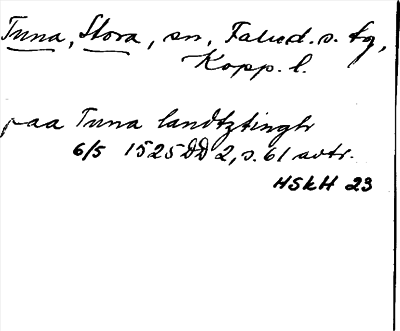 Tuna, Stora, sn, Falud. s. tg,
Kopp. l.
paa Tuna landtztingh
6/5 1525 DD 2, s. 61 avtr.
HSkH 23